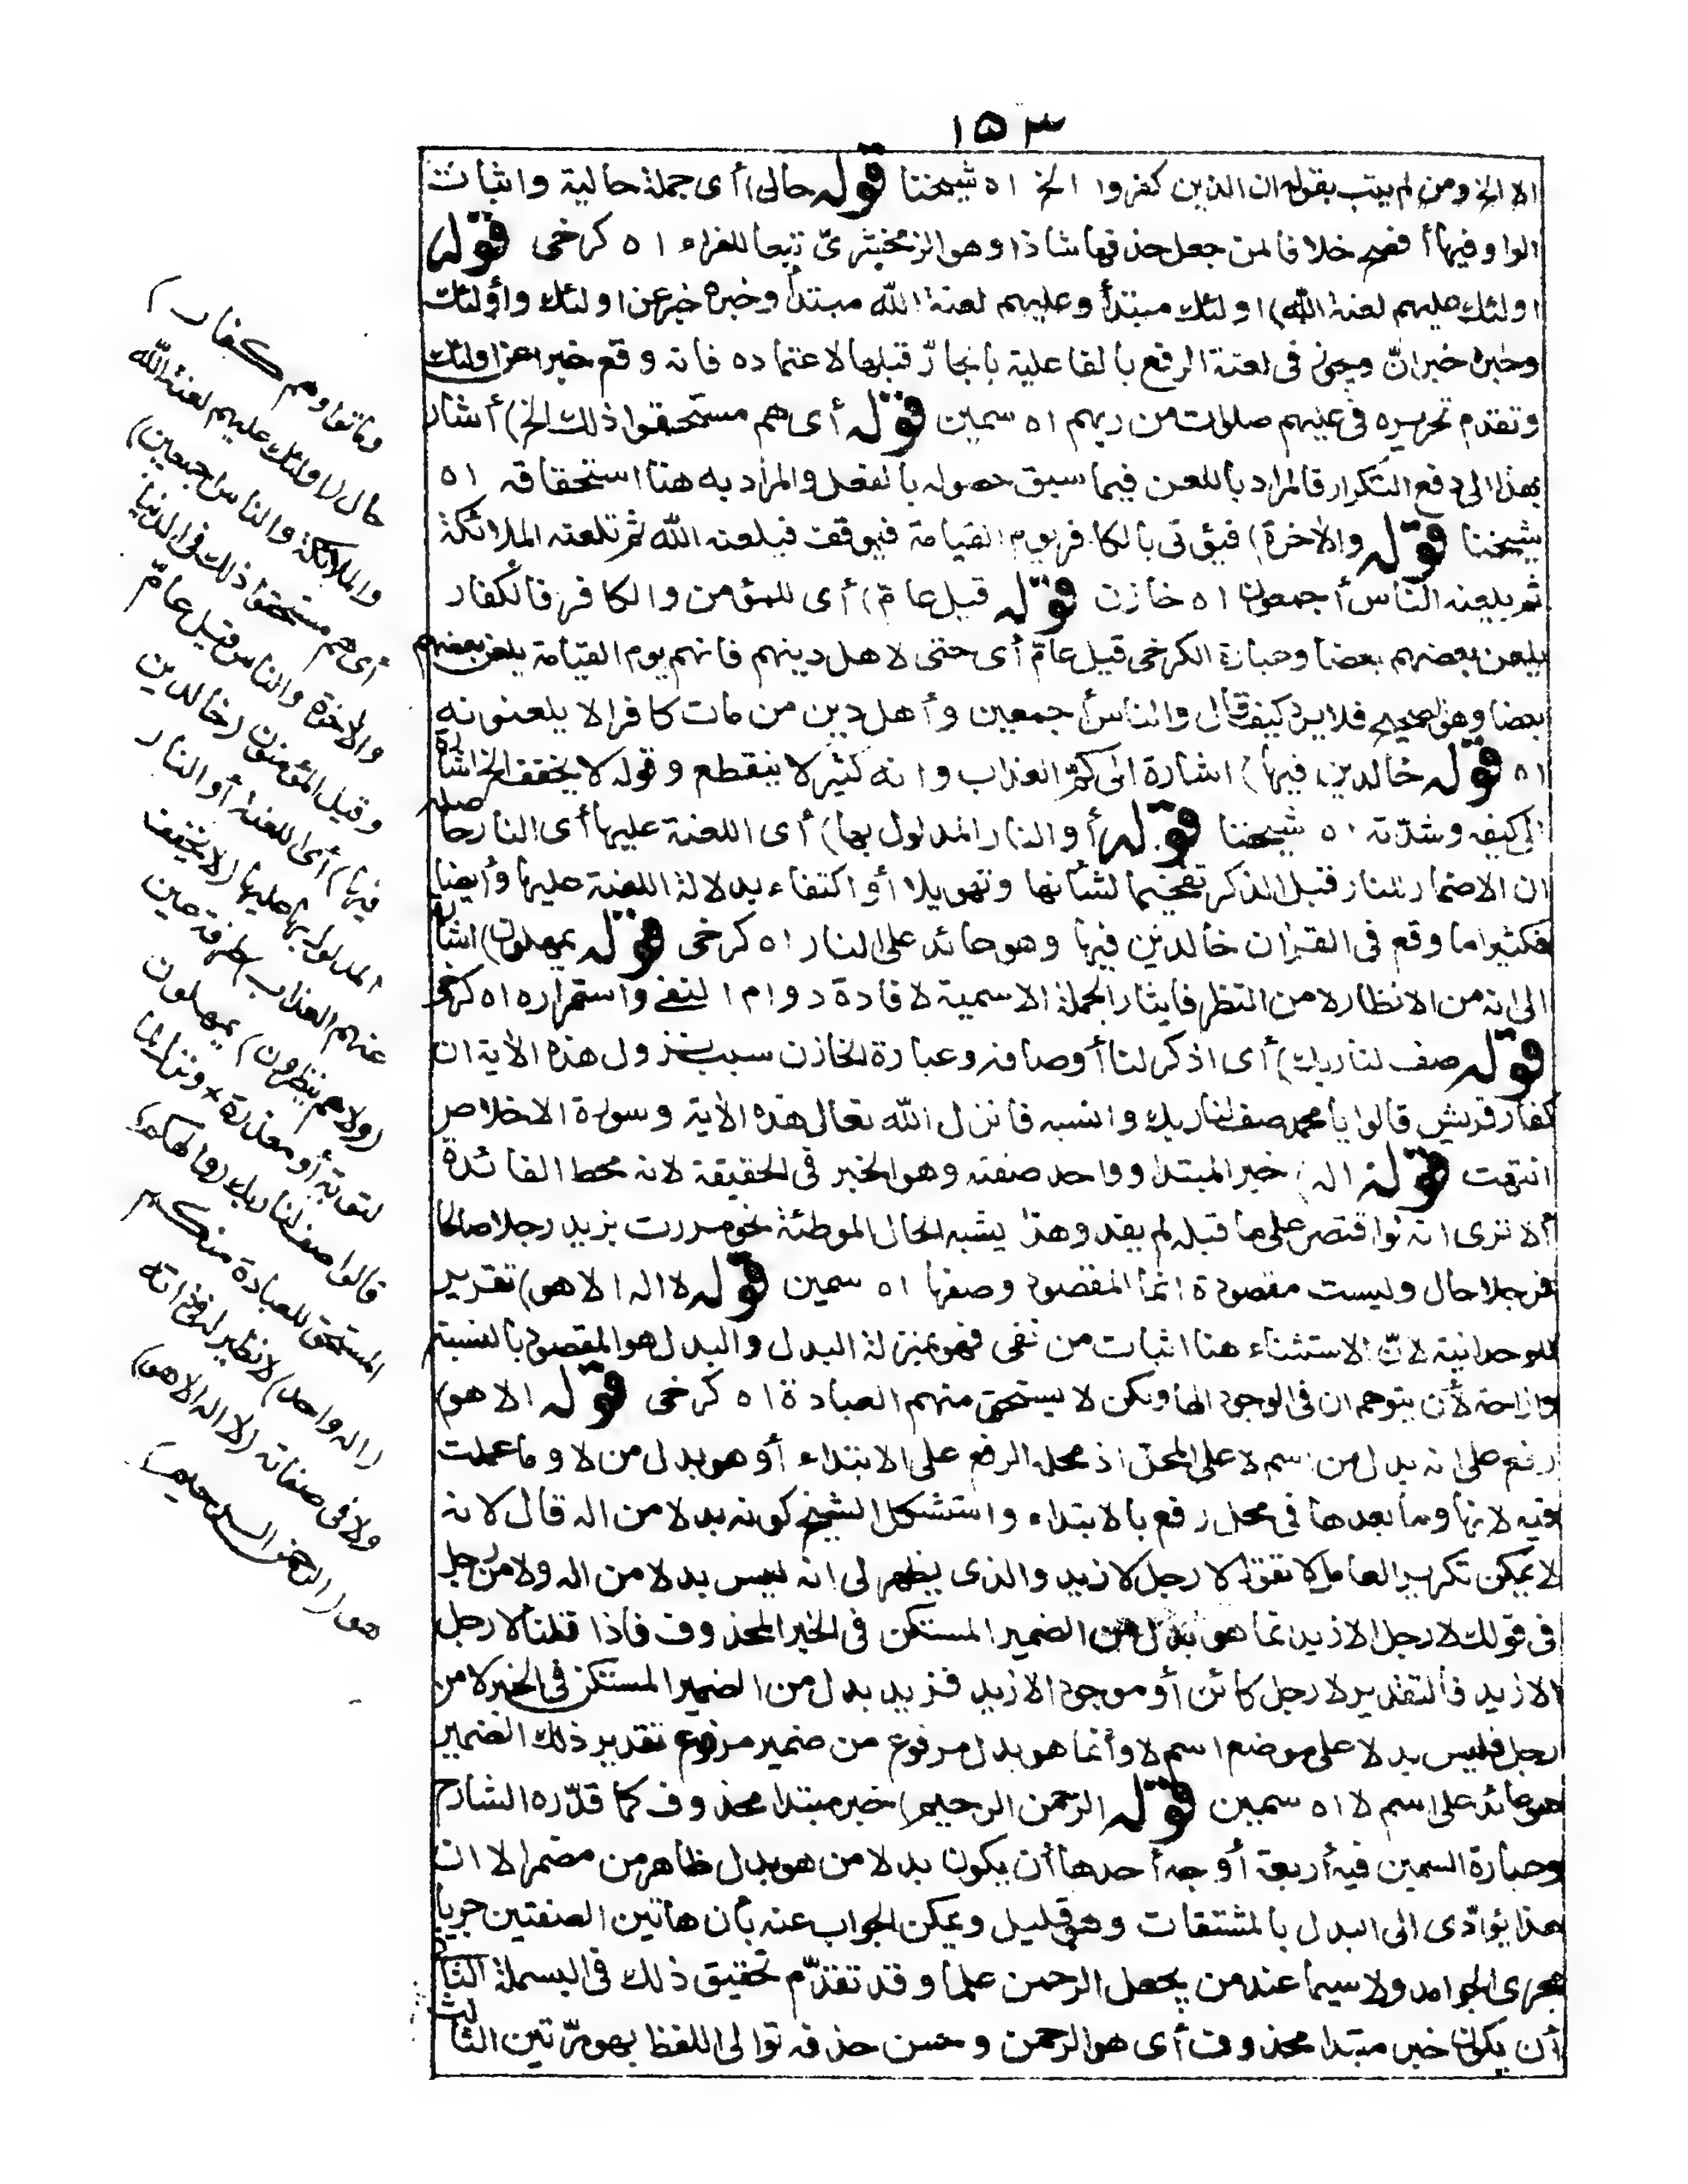 ١٥٣
الا الخ ومن لم يتب بقوله ان الذين كفروا الخ اه شيخنا قوله حالى) أى جملة حالية واثبات
الواو فيها أفصح خلافا لمن جعل حذفها شاذا وهو الزمخشرىّ تبعا للفراء اه كرخى قوله
اولئك عليهم لعنة الله) اولئك مبتدأ وعليهم لعنة الله مبتدأ وخبره خبر عن اولئك وأولئك
وخبره خبر انّ ويجوز فى لعنة الرفع بالفاعلية بالجارّ قبلها لاعتماده فانه وقع خبرا عن اولئك
وتقدم تحريره فى عليهم صلوات من ربهم اه سمين قوله أى هم مستحقوا ذلك الخ) أشار
بهذا الى دفع التكرار فالمراد باللعن فيما سبق حصوله بالفعل والمراد به هنا استحقاقه اه
شيخنا قوله والاخرة) فيؤتى بالكافر يوم القيامة فيوقف فيلعنه الله ثم تلعنه الملائكة
ثم يلعنه الناس أجمعون اه خازن قوله قيل عامّ) أى للمؤمن والكافر فالكفار
يلعن بعضهم بعضا وعبارة الكرخى قيل عامّ أى حتى لاهل دينهم فانهم يوم القيامة يلعن بعضهم
بعضا وهو الصحيح فلا يرد كيف قال والناس أجمعين وأهل دين من مات كافرا لا يلعنونه
اه قوله خالدين فيها) اشارة الى كمّ العذاب وانه كثير لا ينقطع وقوله لا يخفف الخ اشارة
الى كيفه وشدّته اه شيخنا قوله أو النار المدلول بها) أى اللعنة عليها أى النار حاصله
ان الاضمار للنار قبل الذكر تفخيما لشأنها وتهويلا أو اكتفاء بدلالة اللعنة عليها وأيضا
فكثيرا ما وقع فى القران خالدين فيها وهو عائد على النار اه كرخى قوله يمهلون) اشارة
الى انه من الانظار لا من النظر فايثار الجملة الاسمية لافادة دوام النفى واستمراره اه كرخى
قوله صف لنا ربك) أى اذكر لنا أوصافه وعبارة الخازن سبب نزول هذه الأية ان
كفار قريش قالوا يا محمد صف لنا ربك وانسبه فانزل الله تعالى هذه الأية وسورة الاخلاص
انتهت قوله اله) خبر المبتدا وواحد صفته وهو الخبر فى الحقيقة لانه محط الفائدة
ألا ترى انه لو اقتصر على ما قبله لم يفد وهذا يشبه الحال الموطئة نحو مررت بزيد رجلا صالحا
فرجلا حال وليست مقصودة انما المقصود وصفها اه سمين قوله لا اله الا هو) تقرير
للوحدانية لانّ الاستثناء هنا اثبات من نفى فهو بمنزلة البدل والبدل هو المقصود بالنسبة
وازاحة لأن يتوهم ان فى الوجود الها ولكن لا يستحق منهم العبادة اه كرخى قوله الا هو)
رفع على انه بدل من اسم لا على المحل اذ محله الرفع على الابتداء أو هو بدل من لا وما عملت
فيه لانها وما بعدها فى محل رفع بالابتداء واستشكل الشيخ كونه بدلا من اله قال لانه
لا يمكن تكرير العامل لا تقول لا رجل لا زيد والذى يظهر لى انه ليس بدلا من اله ولا من رجل
فى قولك لا رجل الا زيد انما هو بدل من الضمير المستكن فى الخبر المحذوف فاذا قلنا لا رجل
الا زيد فالتقدير لا رجل كائن أو موجود الا زيد فزيد بدل من الضمير المستكن فى الخبر لا من
رجل فليس بدلا على موضع اسم لا وأنما هو بدل مرفوع من ضمير مرفوع تقدير ذلك الضمير
هو عائد على اسم لا اه سمين قوله الرحمن الرحيم) خبر مبتدا محذوف كما قدّره الشارح
وعبارة السمين فيه أربعة أوجه أحدها أن يكون بدلا من هو بدل ظاهر من مضمر الا ان
هذا يؤدّى الى البدل بالمشتقات وهو قليل ويمكن الجواب عنه بأن هاتين الصفتين جريا
مجرى الجوامد ولا سيما عند من يجعل الرحمن علما وقد تقدّم تحقيق ذلك فى البسملة الثانى
أن يكون خبر مبتدا محذوف أى هو الرحمن وحسن حذفه توالى اللفظ بهو مرّتين الثالث
وماتوا وهم كفار)
حال (اولئك عليهم لعنة الله
والملائكة والناس اجمعين)
أى هم مستحقوا ذلك فى الدنيا
والاخرة والناس قيل عامّ
وقيل المؤمنون (خالدين
فيها) أى اللعنة أو النار
المدلول بها عليها (لا يخفف
عنهم العذاب) طرفة عين
(ولا هم ينظرون) يمهلون
لتوبة أو معذرة ونزل لما
قالوا صف لنا ربك (والهكم)
المستحق للعبادة منكم
(اله واحد) لا نظير له فى ذاته
ولا فى صفاته (لا اله الا هو)
هو (الرحمن الرحيم)